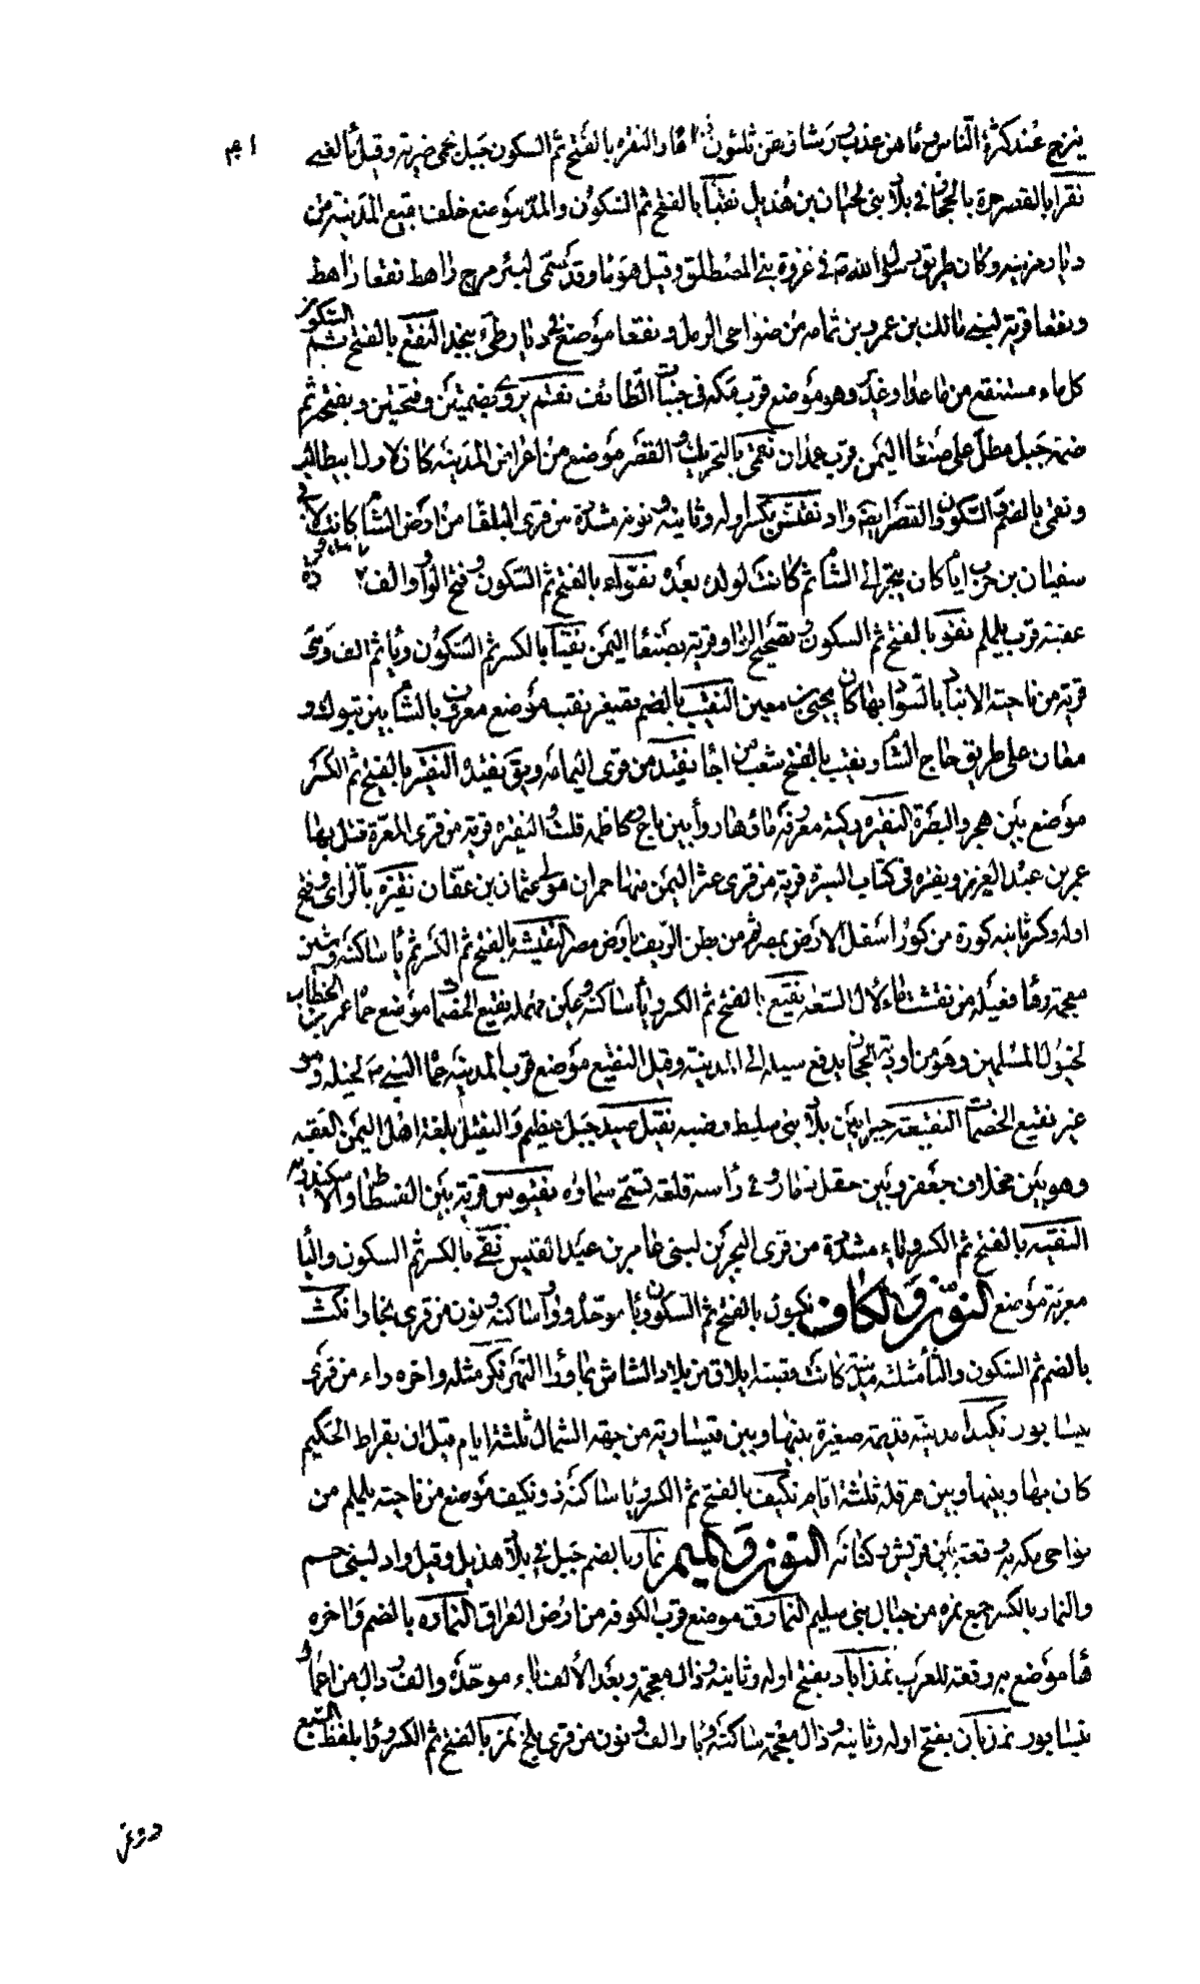 ينزح عند كثرة الناس وماؤهن عذب ورشاؤهن ثلثون ذراعا النقره بالفتح ثم السكون جبل بحمى ضرية وقيل بالغين
نقرا بالقصر حرة بالحجاز في بلاد بني لحيان بن هذيل نقبا بالفتح ثم السكون والمد موضع خلف بقيع المدينة من
ديار مزينه وكان طريق رسول الله ص في غزوة بني المصطلق وقيل هو ماء وقد سمى كثير مرج راهط نقعاء راهط
ونقعا قرية لبني مالك بن عمرو بن ثمامه من ضواحى الرمل ونقعا موضع في ديار طيء بنجد النقع بالفتح ثم السكون
كل ماء مستنقع من ماء عد او غدير وهو موضع قرب مكه في جنبات الطائف نقم يروى بضمتين وفتحتين وبفتح ثم
ضمة جبل مطل على صنعا اليمن قرب غمدان نقمى بالتحريك والقصر موضع من اعراض المدينة كان لال ابيطالب
ونقمى بالضم والسكون والقصر ايضا واد نقنس بكسر اوله وثانيه ونونه مشددة من قرى البلقا من ارض الشام كانت لابي
سفيان بن حرب ايام كان يتجر الى الشام ثم كانت لولده بعده نقواء بالفتح ثم السكون وفتح الواو والف
عقبة قرب يلملم نقو بالفتح ثم السكون وتصحيح الواو قرية بصنعا اليمن نقيا بالكسر ثم السكون ويا ثم الف وهى
قرية من ناحية الانبار بالسواد بها كان يحيى بن معين النقيب بالضم تصغير نقب موضع معروف بالشام بين تبوك و
معان على طريق حاج الشام ونقيب بالفتح شعب من اجا نقيد من قرى اليمامه ويق نقيده النقير بالفتح ثم الكسر
موضع بين هجر والبصرة النقيره ركية معروفة ماؤها رواء بين ثاج وكاظمه قلت والنقيره قرية من قرى المعرة قتل بها
عمر بن عبد العزيز ونقيره في كتاب السيرة قرية من قرى عثر اليمن منها حمران مولى عثمان بن عفان نقيزه بالزاى وفتح
اوله وكسر ثانيه كورة من كور اسفل الارض بمصر ثم من بطن الريف بارض مصر النقيشه بالفتح ثم الكسر ثم يا ساكنة وشين
معجمة وها فعيله من نقشت ماء لال السعله نقيع بالفتح ثم الكسر ويا ساكنة وعين مهمله نقيع الخضمات موضع حماه عمر بن الخطاب
لخيول المسلمين وهو من اودية الحجاز يدفع سيله الى المدينة وقيل النقيع موضع قرب المدينة حماه النبي ص لخيله وهو
غير نقيع الخضمات النقيعة خبراء بين بلاد بني سليط وضبه نقيل صيد جبل عظيم والنقيل بلغة اهل اليمن العقبه
وهو بين مخلاف جعفر وبين حقل ذمار وفى راسه قلعه تسمى سماره نقيوس قرية بين الفسطاط والاسكندرية
النقيه بالفتح ثم الكسر وياء مشددة من قرى البحرين لبنى عامر بن عبد القيس نقى بالكسر ثم السكون واليا
معربة موضع النون والكاف نكبون بالفتح ثم السكون وبا موحدة وواو ساكنة ونون من قرى بخارا نكث
بالضم ثم السكون والثا مثلثه مدينة كانت قصبة ايلاق من بلاد الشاش بما وراء النهر نكر مثله واخره راء من قرى
نيسابور نكيدا مدينة قديمة صغيرة بينها وبين قيساريه من جهة الشمال ثلثة ايام قيل ان بقراط الحكيم
كان بها وبينها وبين هرقله ثلثة ايام نكيف بالفتح ثم الكسر ويا ساكنة ذو نكيف موضع من ناحية يلملم من
نواحى مكه به وقعة بين قريش وكنانه النون والميم نمار بالضم جبل في بلاد هذيل وقيل واد لبنى جسم
والنمار بالكسر جمع نمره من جبال بني سليم النمارق موضع قرب الكوفه من ارض العراق النماره بالضم واخره
ها موضع به وقعة للعرب نمذاباد بفتح اوله وثانيه وذال معجمه وبعد الالف باء موحدة والف وذال من اعمال
نيسابور نمذيان بفتح اوله وثانيه وذال معجمة ساكنة ويا والف ونون من قرى بلخ نمر بالفتح ثم الكسر ورا بلفظ السبع